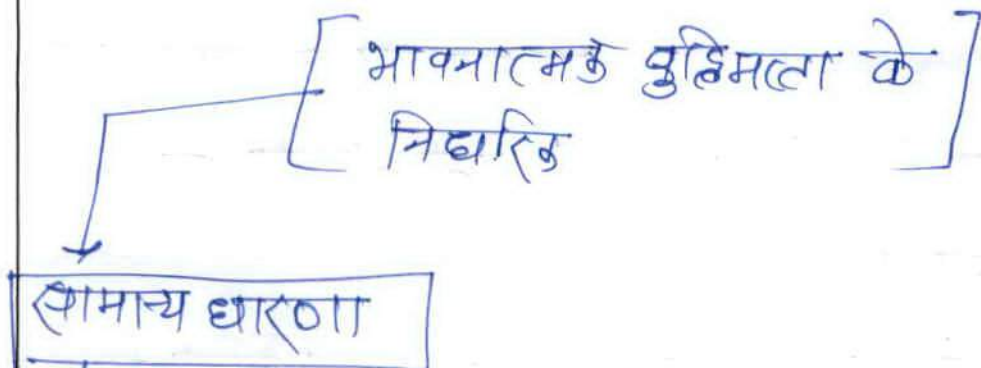 भावनात्मक बुद्धिमत्ता के
निर्धारक
सामान्य धारणा